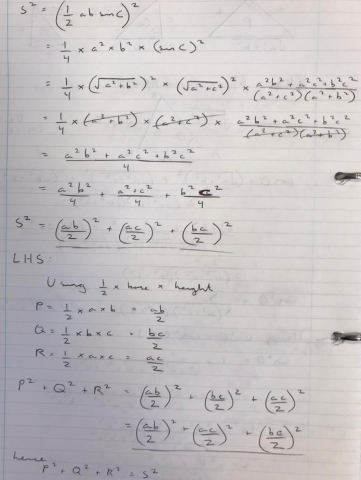 S² = (1/2 ab sin C)²
= 1/4 × a² × b² × (sin C)²
= 1/4 × (√(a²+b²))² × (√(a²+c²))² × (a²b² + a²c² + b²c²)/((a²+c²)(a²+b²))
= 1/4 × (a²+b²) × (a²+c²) × (a²b² + a²c² + b²c²)/((a²+c²)(a²+b²))
= (a²b² + a²c² + b²c²)/4
= a²b²/4 + (a²+c²)/4 + b²c²/4
S² = (ab/2)² + (ac/2)² + (bc/2)²
LHS:
Using 1/2 × base × height
P = 1/2 × a × b = ab/2
Q = 1/2 × b × c = bc/2
R = 1/2 × a × c = ac/2
P² + Q² + R² = (ab/2)² + (bc/2)² + (ac/2)²
= (ab/2)² + (ac/2)² + (bc/2)²
hence
P² + Q² + R² = S²